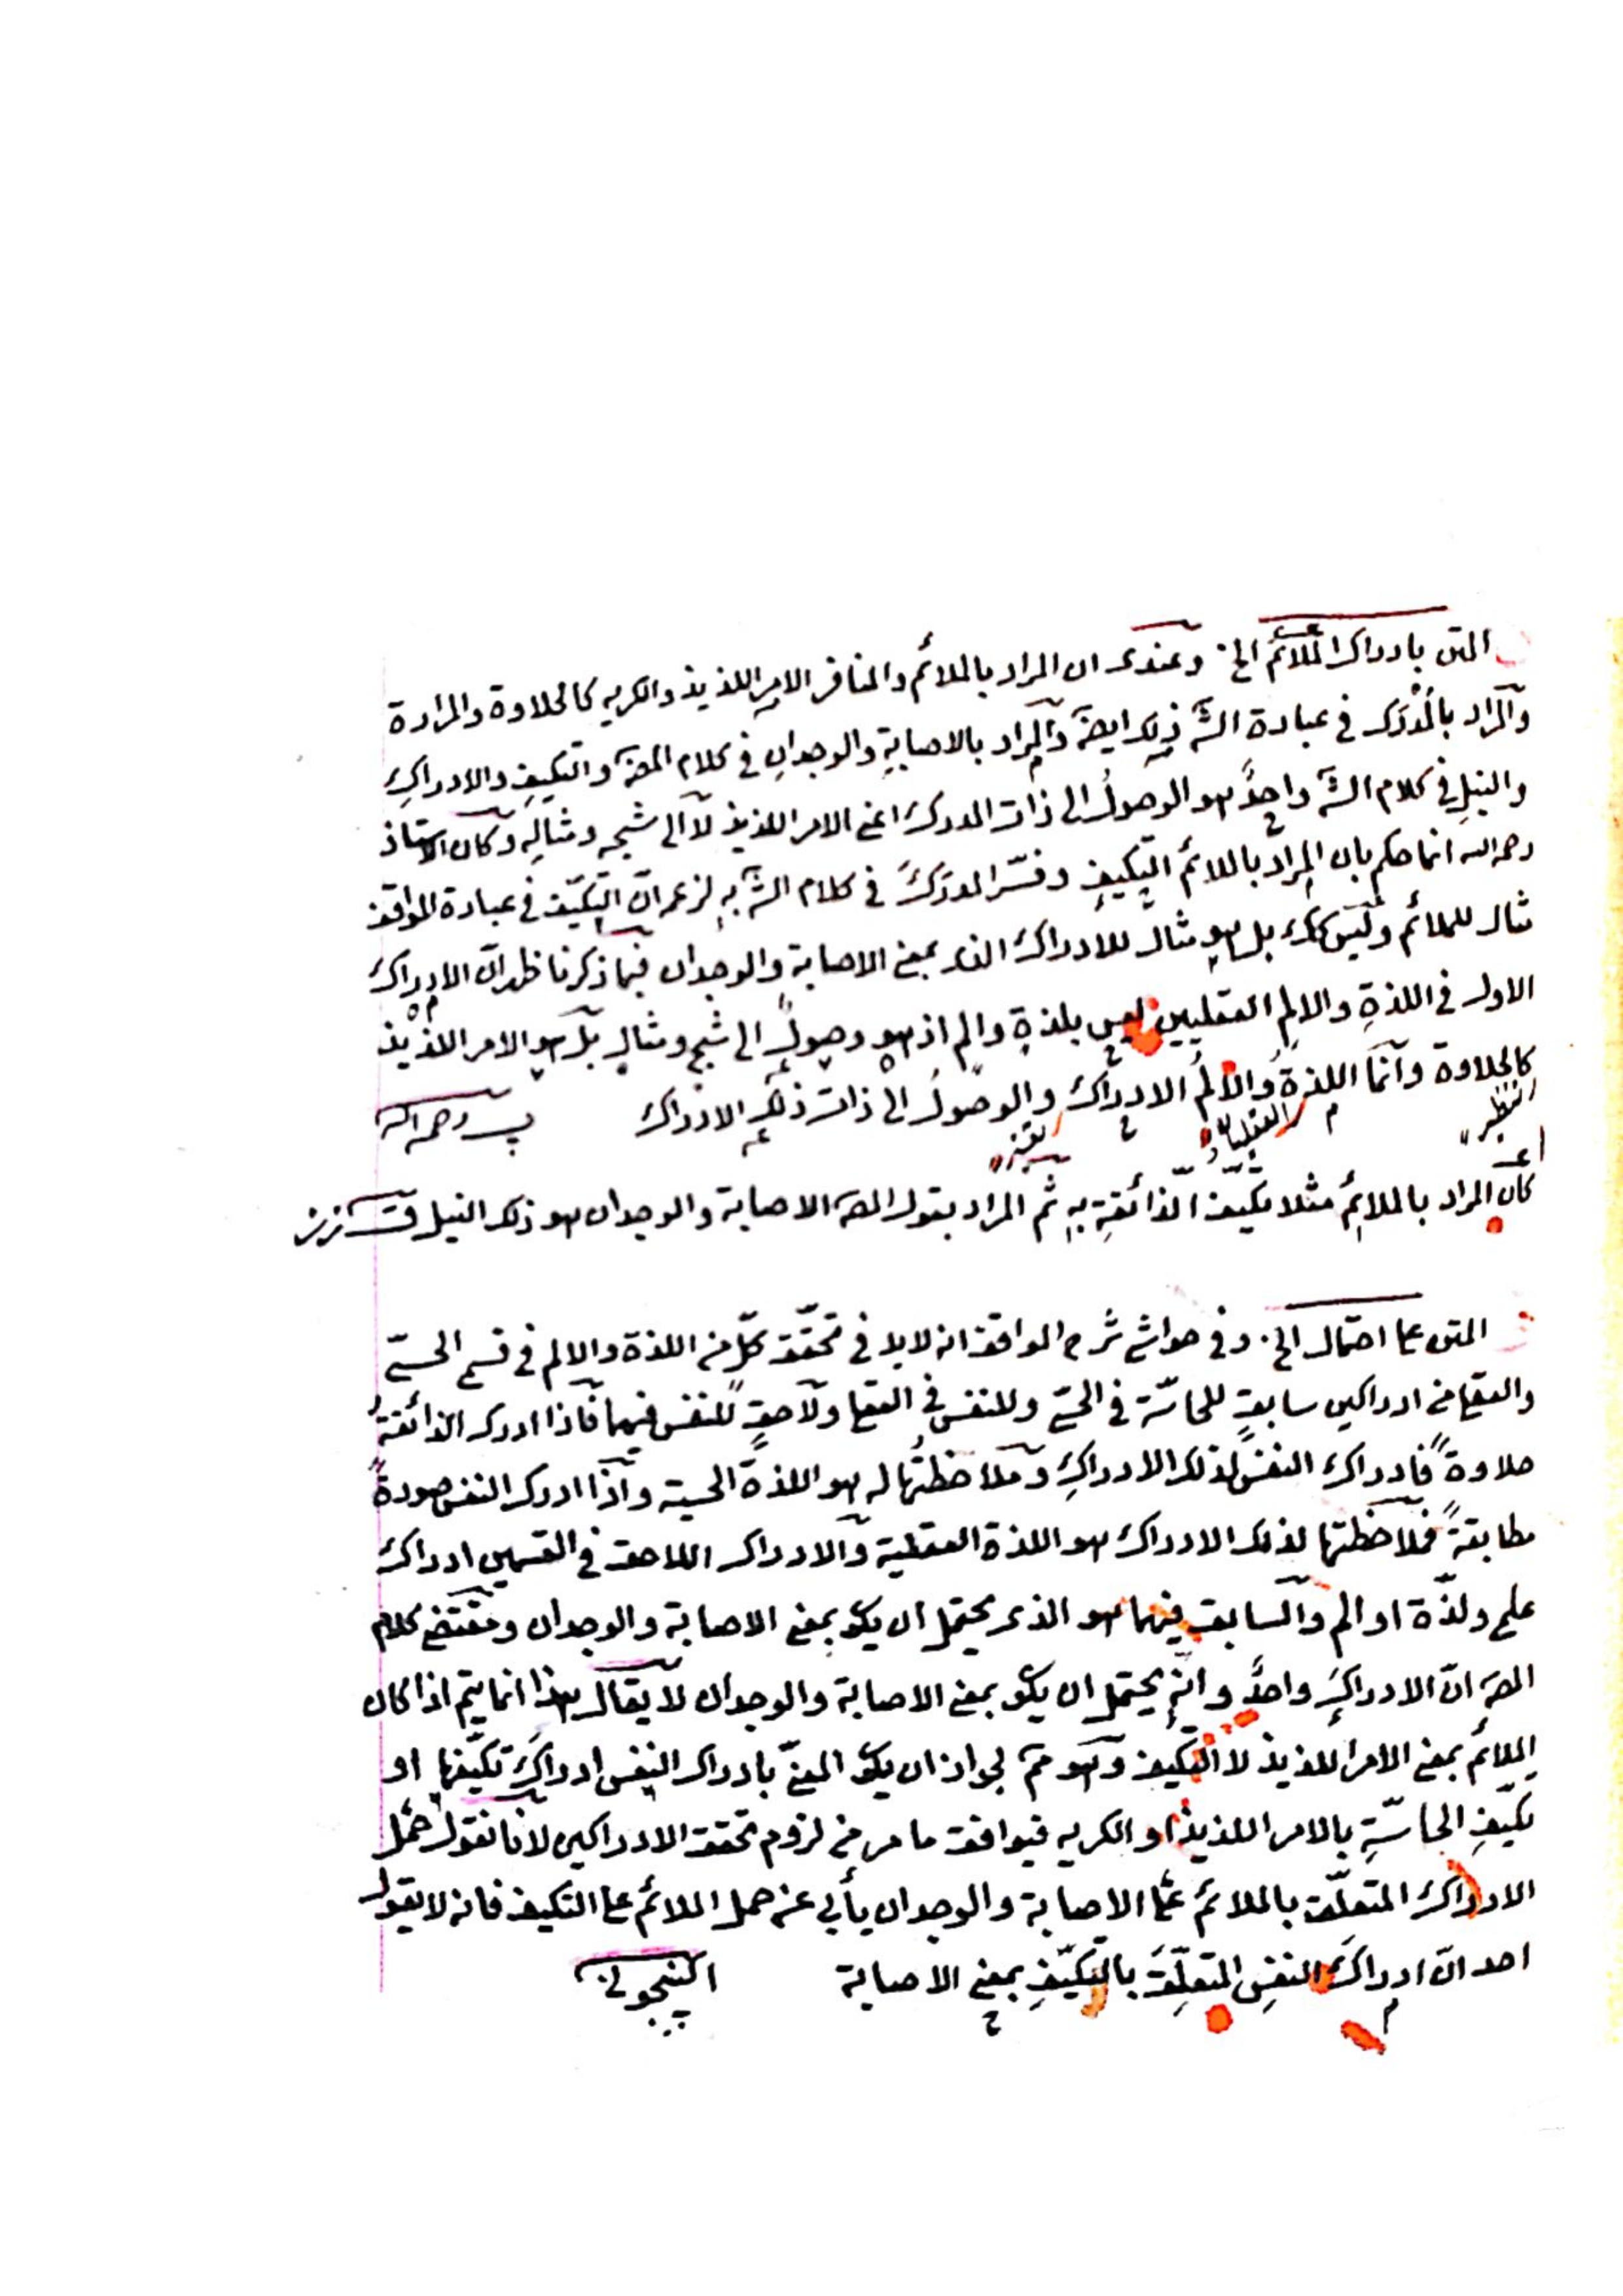 المتن بادراك الملائم الخ. وعندى ان المراد بالملائم والمنافر الامر اللذيذ والكريه كالحلاوة والمرارة
والمراد بالمُدْرَك فى عبادة الشَّ ذلك ايضًا والمراد بالاصابةِ والوجدانِ فى كلام المصَ والتكيفِ والادراكِ
والنيلِ فى كلام الشَّ واحدٌ هو الوصولُ الى ذات المدرك اعنى الامر اللذيذ لا الى شبحه ومثالِه وكان الاستاذ
رحمه الله انما حكم بان المراد بالملائم التكيفِ وفسّر المدرَكَ فى كلام الشَّ بهِ لزعم انّ التكيّف فى عبارة المواقف
مثال للملائم وليس كك بل هو مثال للادراك الذى بمعنى الاصابة والوجدان فبما ذكرنا ظهر انّ الادراك
الاول فى اللذةِ والالمِ العقليين ليس بلذةٍ والم اذ هو وصولٌ الى شبحٍ ومثالٍ بل هو الامر اللذيذ
كالحلاوة وانما اللذةُ والالمُ الادراك والوصولُ الى ذات ذلك الادراك رحمه الله
النظير
العقليان
كان المراد بالملائمِ مثلا تكيّف الذائقةِ بهِ ثم المراد بقول المصَ الاصابة والوجدان هو ذلك النيل
المتن على احتمال الخ. وفى حواشى شرح المواقف انه لابد فى تحقّق كلّ من اللذة والالم فى قسمى الحسىّ
والعقلى من ادراكين سابقٍ للحاسّة فى الحسىّ وللنفس فى العقلى ولاحقٍ للنفس فيهما فاذا ادرك الذائقةُ
حلاوةً فادراك النفس لذلك الادراكِ وملاحظتُها له هو اللذة الحسية واذا ادرك النفس صورةً
مطابقةً فملاحظتها لذلك الادراك هو اللذة العقلية والادراك اللاحق فى القسمين ادراك
علمى ولذّة او الم والسابق فيهما هو الذى يحتمل ان يكو بمعنى الاصابة والوجدان ومقتضى كلام
المصَ انّ الادراكَ واحدٌ وانه يحتمل ان يكو بمعنى الاصابة والوجدان لا يقال هذا انما يتم اذا كان
الملائم بمعنى الامر اللذيذ لا التكيف وهو مم لجواز ان يكو المعنىّ بادراك النفس ادراكَ تكيّفها او
تكيّفِ الحاسّةِ بالامر اللذيذ او الكريه فيوافق ما مر من لزوم تحقق الادراكين لانا نقول حمل
الادراك المتعلّق بالملائم على الاصابة والوجدان يأبى عن حمل الملائم على التكيف فانه لا يقول
احد انّ ادراكَ النفسِ المتعلِّقَ بالتكيّفِ بمعنى الاصابة الپنجوينى